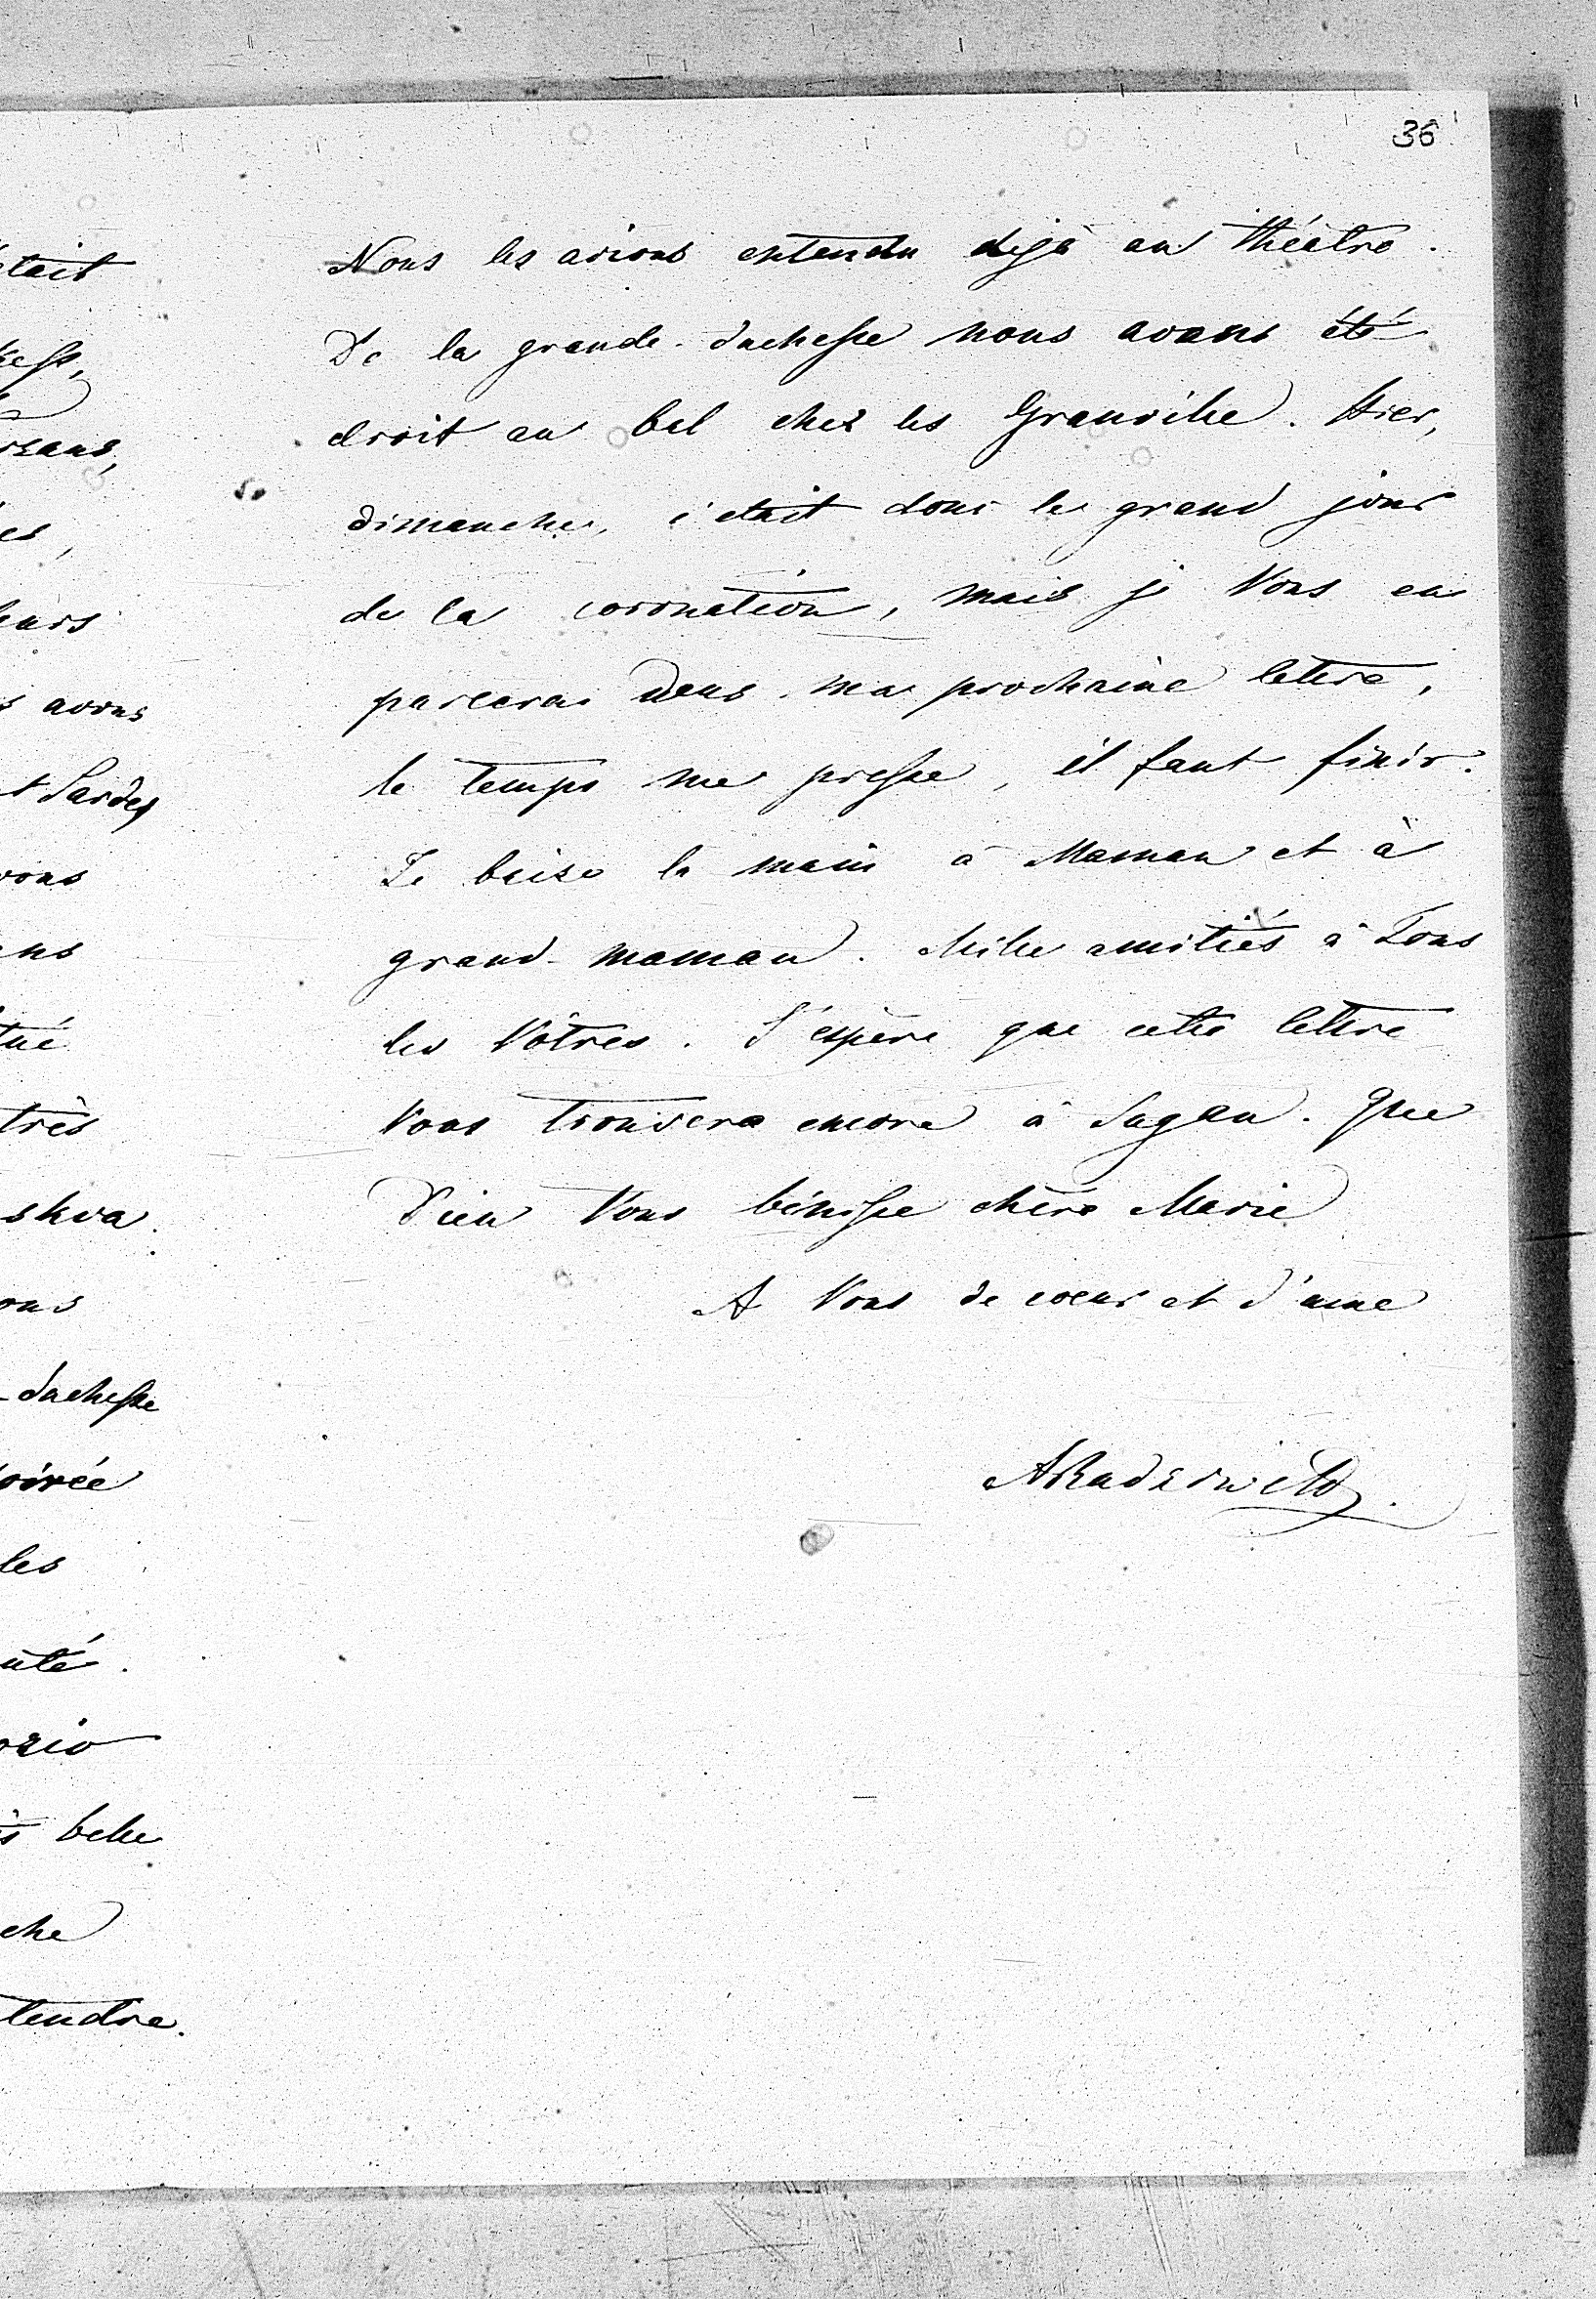 36
Nous les avions entendu dejà au théatre.
De la grande-duchesse nous avons été
droit au bal chez les Granville. Hier,
dimanche, c'etait donc le grand jour
de la coronation, mais je Vous en
parlerai dans ma prochaine lettre,
le temps me presse, il faut finir.
Je baise la main à Maman et à
grand-maman. Mille amitiés à Tous
les Vôtres. J'espère que cette lettre
Vous trouvera encore à Sagan. Que
Dieu Vous bénisse chère Marie
A Vous de coeur et d'ame
ARadziwill.
avons
très
duchesse
les
belle